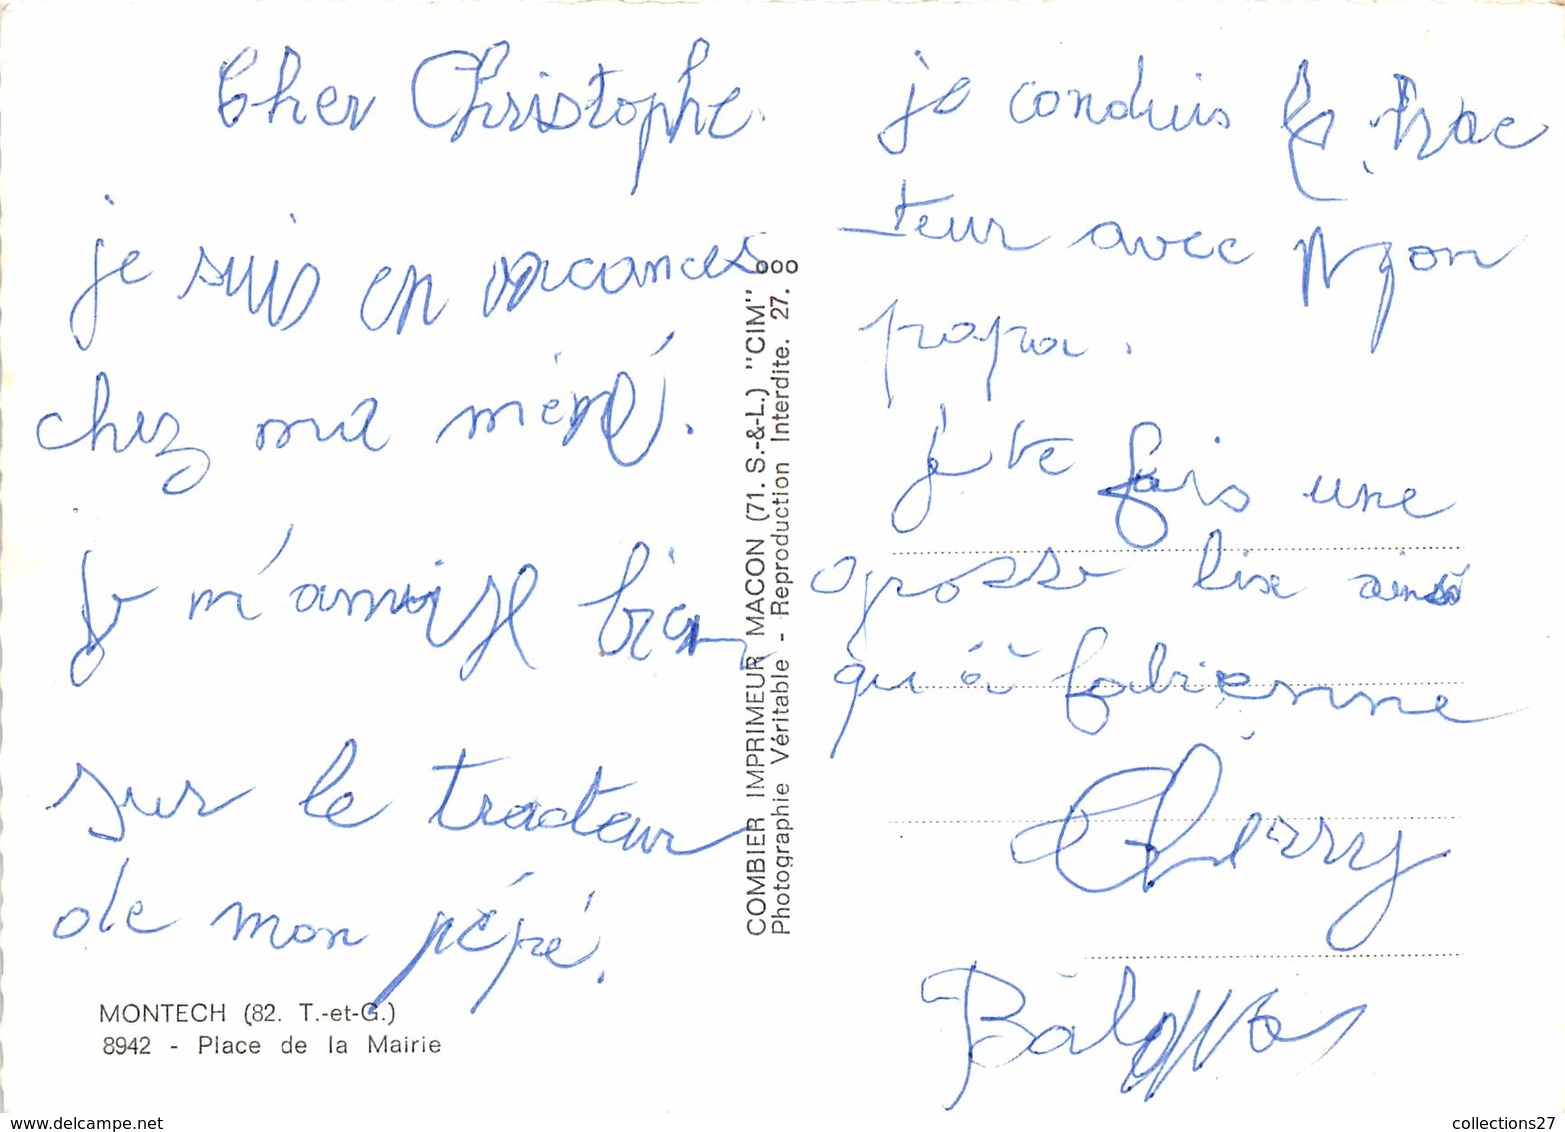 Cher Christophe.
je suis en vacances
chez ma mémé.
je m'amuse bien
sur le tracteur
de mon pépé.
MONTECH (82. T.-et-G.)
8942 - Place de la Mairie
COMBIER IMPRIMEUR MACON (71. S.-&-L.) "CIM" ooo
Photographie Véritable - Reproduction Interdite. 27.
je conduis le trac
teur avec mon
papa.
je te fais une
grosse bise ainsi
qu'à fabienne
Thierry
collections27